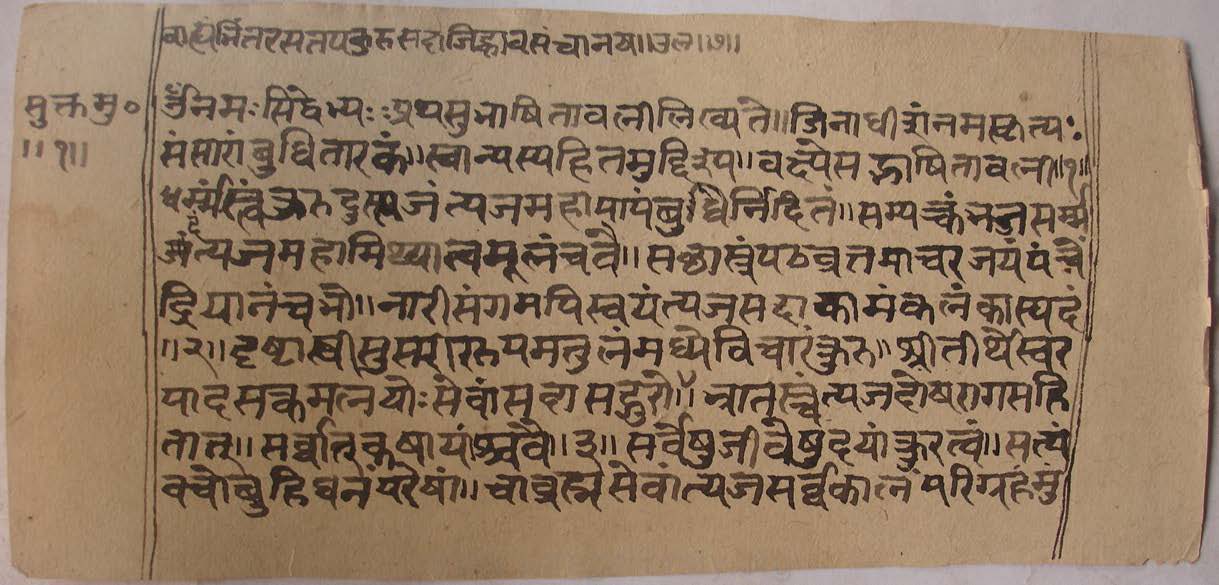 बाह्यंभिंतरसतपकुरुसदाजिह्वावसंचानय॥३७॥७॥
सुक्तमु०
॥१॥
ॐनमःसिद्धेभ्यःःअथसुभाषितावलीलिख्यते॥जिनाधीशंनमस्कृत्यः
संसारांबुधितारकं॥स्वान्यस्यहितमुद्दिश्य॥वक्ष्येसद्भाषितावली॥१॥
धर्मंत्वंकुरुदुस्त्यजंत्यजमहापापंबुधैर्निंदितं॥सम्यक्तंभजसर्म्म
त्यजमहामिथ्यात्वमूलंचवै॥सछास्त्रंपठवृत्तमाचरजयंपंचें
द्रियानंचभो॥नारीसंगमपिस्वयंत्यजसदाकामंकलंकास्पदं
॥२॥दृष्ट्वास्त्रीसुसरीररूपमतुलंमध्येविचारंकुरु॥श्रीतीर्थेस्वर
पादसक्तमलयोःसेवांसृदासद्गुरो॥भ्रातस्त्वंत्यजदोषरागसहि
तात्॥सर्व्वान्कषायांश्चवै॥३॥सर्वेषुजीवेषुदयांकुरत्वं॥सत्यं
वचोब्रुहिधनंपरेषां॥चाब्रह्मसेवांत्यजसर्व्वकालंपरिग्रहंमुं